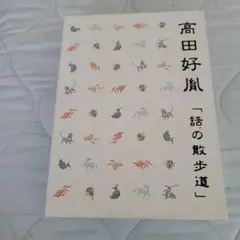 高田好胤
「話の散歩道」